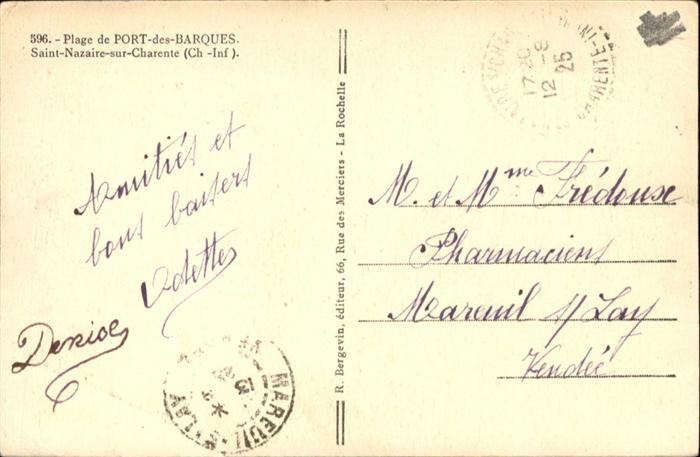 596. - Plage de PORT-des-BARQUES.
Saint-Nazaire-sur-Charente (Ch -Inf ).
Amitiés et
bons baisers
Odette
Denise
R. Bergevin, éditeur, 66, Rue des Merciers - La Rochelle
17 30
12 - 8
25
M. et Mme Frédouse
Pharmaciens
Mareuil s/ Lay
Vendée
MAREUIL
LAY
13